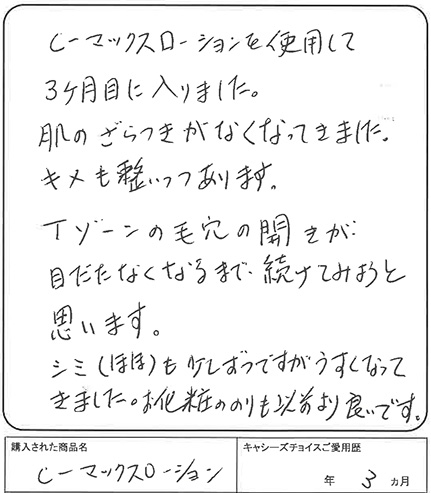 Cーマックスローションを使用して
3ケ月目に入りました。
肌のざらつきがなくなってきました。
キメも整いつつあります。
Tゾーンの毛穴の開きが
目だたなくなるまで続けてみようと
思います。
シミ(ほほ)も少しずつですがうすくなって
きました。お化粧ののりも以前より良いです。
購入された商品名
キャシーズチョイスご愛用歴
Cーマックスローション
年 3 ヵ月